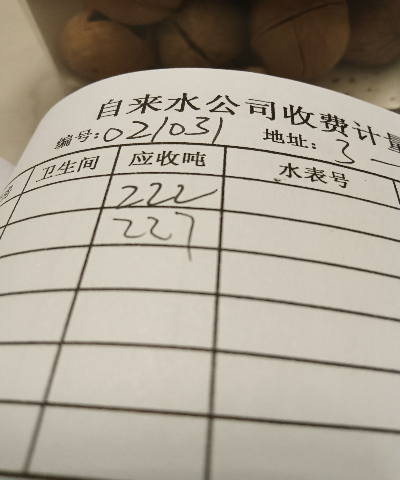 自来水公司收费计量
编号:021031 地址: 3
卫生间 应收吨 水表号
222
227